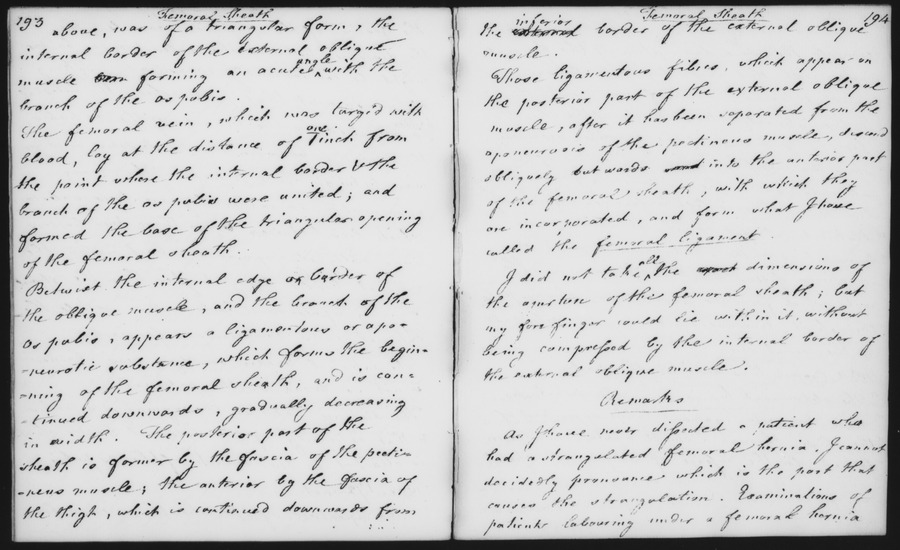 193
Femoral Sheath
above, was of a triangular form, the
internal border of the external oblique
muscle forming an acute angle with the
branch of the os pubis.
The femoral vein, which was larg'd with
blood, lay at the distance of one inch from
the point where the internal border & the
branch of the os pubis were united; and
formed the base of the triangular opening
of the femoral sheath.
Betwixt the internal edge or border of
the oblique muscle, and the branch of the
os pubis, appears a ligamentous or apo=
=neurotic substance, which forms the begin=
=ning of the femoral sheath, and is con=
=tinued downwards, gradually decreasing
in width. The posterior part of the
sheath is former by the fascia of the pecti=
=neus muscle; the anterior by the fascia of
the thigh, which is continued downwards from
Femoral Sheath
194
the inferior border of the external oblique
muscle.
Those ligamentous fibres, which appear on
the posterior part of the external oblique
muscle, after it has been separated from the
aponeurosis of the pectineus muscle, descend
obliquely outwards into the anterior part
of the femoral sheath, with which they
are incorporated, and form what I have
called the femoral ligament.
I did not take all the dimensions of
the aperture of the femoral sheath; but
my fore finger could lie within it, without
being compressed by the internal border of
the external oblique muscle.
Remarks
As I have never dissected a patient who
had a strangulated femoral hernia, I cannot
decidedly pronounce which is the part that
causes the strangulation. Examinations of
patients labouring under a femoral hernia